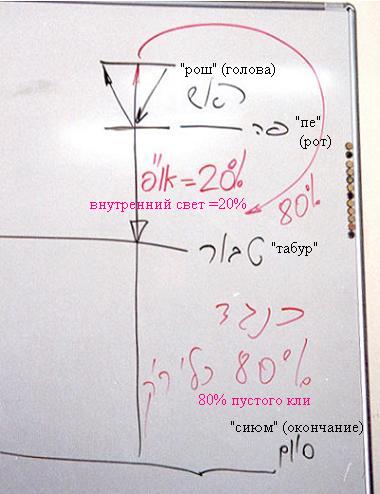 "рош" (голова)
ראש
פה "пе"
(рот)
או"פ = 20%
внутренний свет =20%
80%
טבור "табур"
כנגד
80% כלי ריק
80% пустого кли
"сиюм" (окончание)
סיום